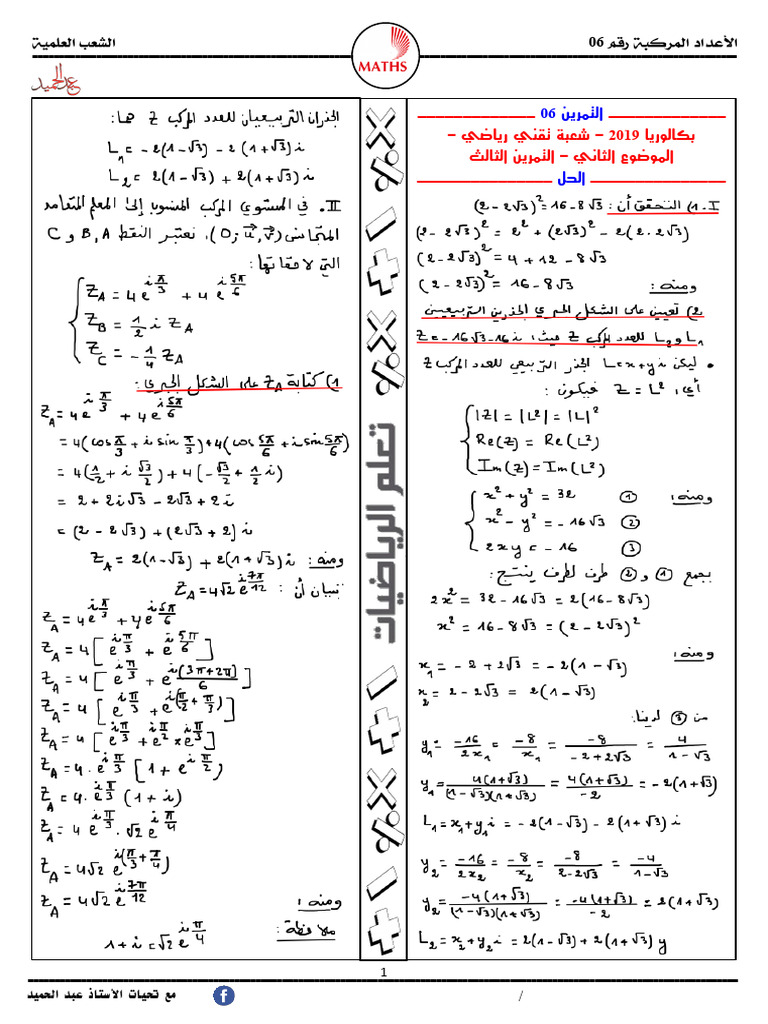 الأعداد المركبة رقم 06
MATHS
الشعب العلمية
عبد الحميد
التمرين 06
بكالوريا 2019 – شعبة تقني رياضي –
الموضوع الثاني – التمرين الثالث
الحل
I- 1) التحقق أن: (2 - 2√3)² = 16 - 8√3
(2 - 2√3)² = 2² + (2√3)² - 2(2·2√3)
(2 - 2√3)² = 4 + 12 - 8√3
ومنه: (2 - 2√3)² = 16 - 8√3
2) تعيين على الشكل الجبري الجذرين التربيعيين
L₁ و L₂ للعدد المركب Z حيث: Z = -16√3 - 16i
• ليكن L = x + yi الجذر التربيعي للعدد المركب Z
أي: Z = L² فيكون:
|Z| = |L²| = |L|²
Re(Z) = Re(L²)
Im(Z) = Im(L²)
ومنه:
x² + y² = 32 ①
x² - y² = -16√3 ②
2xy = -16 ③
بجمع ① و ② طرف لطرف ينتج:
2x² = 32 - 16√3 = 2(16 - 8√3)
x² = 16 - 8√3 = (2 - 2√3)²
ومنه:
x₁ = -2 + 2√3 = -2(1 - √3)
x₂ = 2 - 2√3 = 2(1 - √3)
من ③ لدينا:
y₁ = -16/2x₁ = -8/x₁ = -8/(-2 + 2√3) = 4/(1 - √3)
y₁ = 4(1 + √3)/(1 - √3)(1 + √3) = 4(1 + √3)/-2 = -2(1 + √3)
L₁ = x₁ + y₁i = -2(1 - √3) - 2(1 + √3)i
y₂ = -16/2x₂ = -8/x₂ = -8/(2 - 2√3) = -4/(1 - √3)
y₂ = -4(1 + √3)/(1 - √3)(1 + √3) = -4(1 + √3)/-2 = 2(1 + √3)
L₂ = x₂ + y₂i = 2(1 - √3) + 2(1 + √3)y
تعلم الرياضيات
الجذران التربيعيان للعدد المركب Z هما:
L₁ = -2(1 - √3) - 2(1 + √3)i
L₂ = 2(1 - √3) + 2(1 + √3)i
II- في المستوي المركب المنسوب إلى المعلم المتعامد
المتجانس (O; u⃗, v⃗)، نعتبر النقط A, B و C
التي لاحقاتها:
Z_A = 4e^(iπ/3) + 4e^(i5π/6)
Z_B = 1/2 i Z_A
Z_C = -1/4 Z_A
1) كتابة Z_A على الشكل الجبري:
Z_A = 4e^(iπ/3) + 4e^(i5π/6)
= 4(cos π/3 + i sin π/3) + 4(cos 5π/6 + i sin 5π/6)
= 4(1/2 + i √3/2) + 4(-√3/2 + 1/2 i)
= 2 + 2i√3 - 2√3 + 2i
= (2 - 2√3) + (2√3 + 2)i
ومنه: Z_A = 2(1 - √3) + 2(1 + √3)i
تبيان أن: Z_A = 4√2 e^(i7π/12)
Z_A = 4e^(iπ/3) + 4e^(i5π/6)
Z_A = 4[e^(iπ/3) + e^(i5π/6)]
Z_A = 4[e^(iπ/3) + e^(i(3π+2π)/6)]
Z_A = 4[e^(iπ/3) + e^(i(π/2 + π/3))]
Z_A = 4[e^(iπ/3) + e^(iπ/2) × e^(iπ/3)]
Z_A = 4·e^(iπ/3)[1 + e^(iπ/2)]
Z_A = 4·e^(iπ/3)(1 + i)
Z_A = 4e^(iπ/3)·√2 e^(iπ/4)
Z_A = 4√2 e^(i(π/3 + π/4))
ومنه: Z_A = 4√2 e^(i7π/12)
ملاحظة:
1 + i = √2 e^(iπ/4)
1
/
مع تحيات الأستاذ عبد الحميد